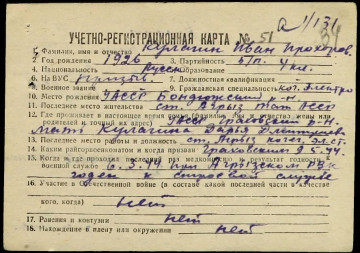 а 1/131
УЧЕТНО-РЕГИСТРАЦИОННАЯ КАРТА № 51
1. Фамилия, имя и отчество Кулагин Иван Прохоров.
2. Год рождения 1926 3. Партийность б/п.
4. Национальность русск. образование 4 кл.
6. На ВУС 7. Должностная квалификация -
8. Военное звание 9. Гражданская специальность
10. Место рождения УАССР р-н
11. Последнее место жительства ст. Агрыз Тат АССР
12. Где проживает в настоящее время семья (фамилия, имя и отчество жены или
родителей и точный их адрес) УАССР р-н
мать Кулагина Дарья Дмитриевна
13. Последнее место работы и должность ст. Агрыз
14. Каким райвоенкоматом и когда призван Граховским 9.5.44.
15. Когда проходил последний раз медкомиссию и результат годности к
военной службе 6.3.44 при Агрызском РВК
годен к строевой службе
16. Участие в Отечественной войне (в составе какой последней части в качестве
кого, когда) нет
17. Ранения и контузии нет
18. Нахождение в плену или окружении нет